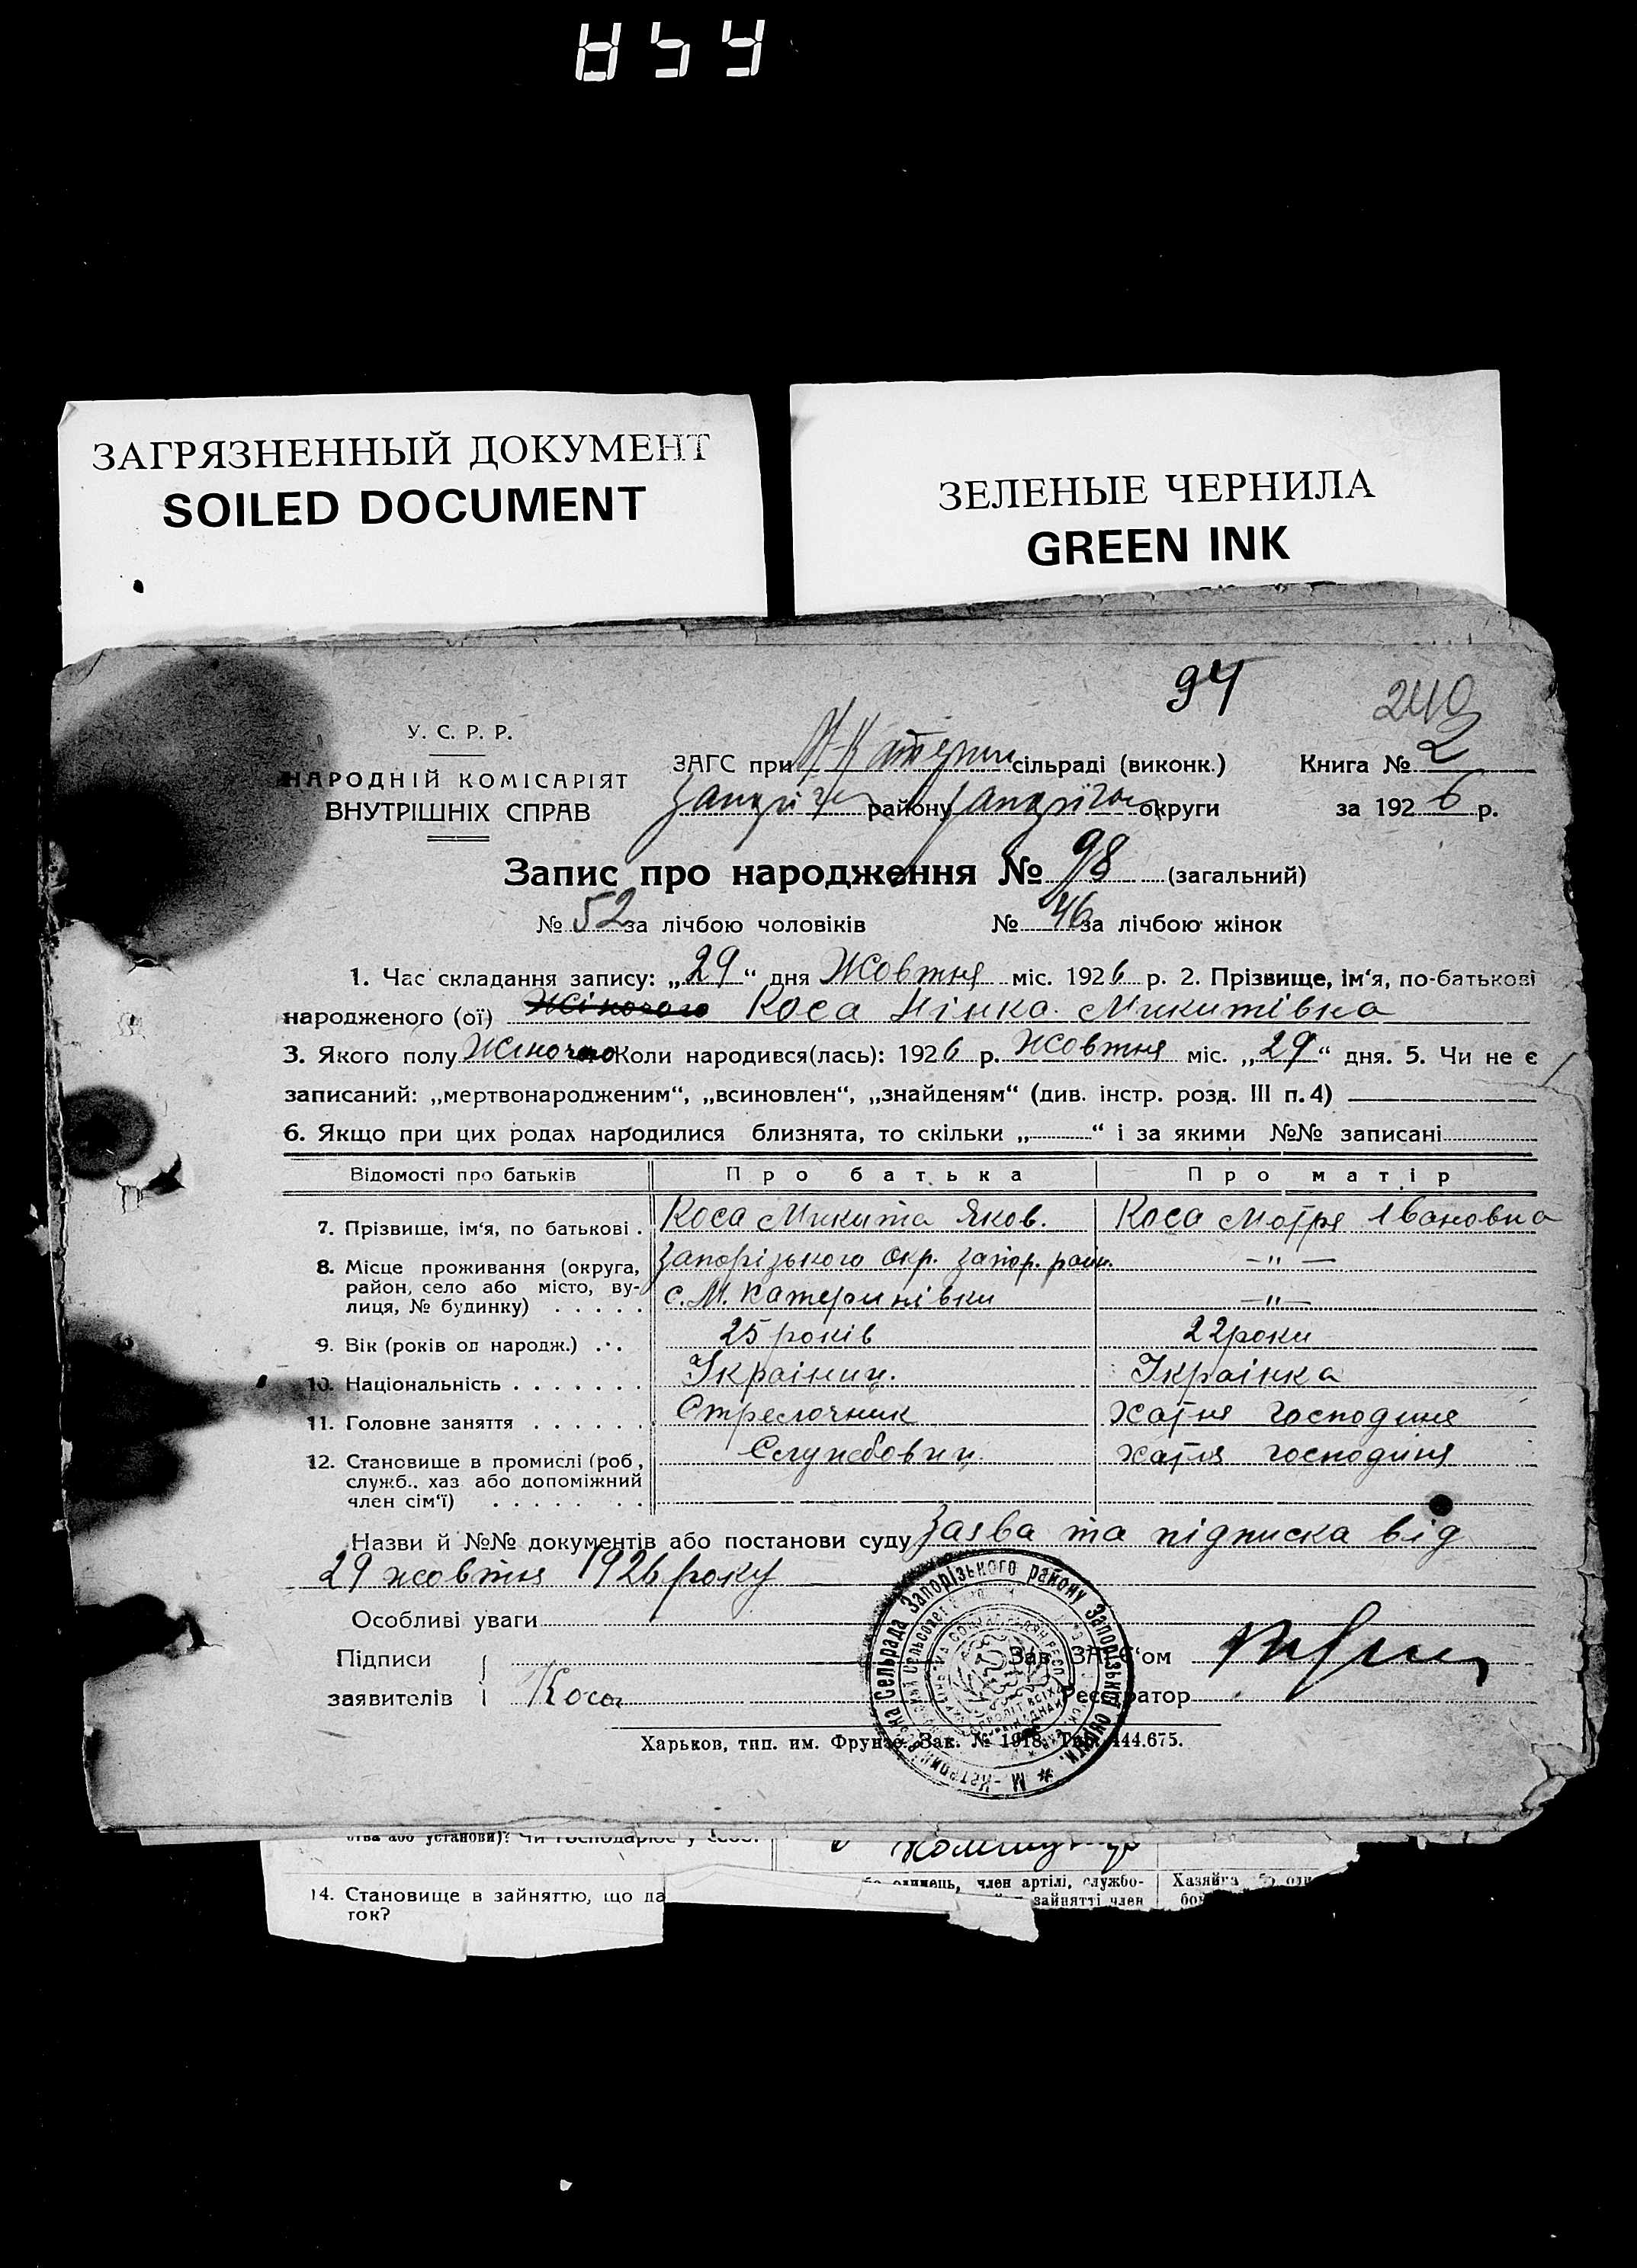 ЗАГРЯЗНЕННЫЙ ДОКУМЕНТ
SOILED DOCUMENT
ЗЕЛЕНЫЕ ЧЕРНИЛА
GREEN INK
94
240
У. С. Р. Р.
НАРОДНІЙ КОМІСАРІЯТ
ВНУТРІШНІХ СПРАВ
ЗАГС при М-Катерин сільраді (виконк.) Книга № 2
району округи за 1926 р.
Запис про народження № 98 (загальний)
№ 52 за лічбою чоловіків № 46 за лічбою жінок
1. Час складання запису: „29“ дня Жовтня міс. 1926 р. 2. Прізвище, ім'я, по-батькові
народженого (ої) Жіночого Коса Нінка Микитівна
3. Якого полу Жіночого Коли народився(лась): 1926 р. Жовтня міс. „29“ дня. 5. Чи не є
записаний: „мертвонародженим“, „всиновлен“, „знайденям“ (див. інстр. розд. III п. 4)
6. Якщо при цих родах народилися близнята, то скільки „ “ і за якими №№ записані
Відомості про батьків Про батька Про матір
7. Прізвище, ім'я, по батькові . Коса Микита Яков. Коса Мотря Івановна
8. Місце проживання (округа, район, село або місто, вулиця, № будинку) . . . . . Запорізького окр. Запор. район. — " —
с. М. Катеринівки — " —
9. Вік (років од народж.) . . . 25 років 22 роки
10. Національність . . . . . . . Украіниц. Украінка
11. Головне заняття . . . . . . Стрелочник хатня господиня
12. Становище в промислі (роб., служб.. хаз або допоміжний член сім'ї) . . . . . . . Службовиц. хатня господиня
Назви й №№ документів або постанови суду Заява та підписка від
29 жовтня 1926 року
Особливі уваги
Підписи
заявителів Коса
Зав. ЗАГС'ом
Реєстратор
Сельрада Запорізького району Запорізької округи.
Харьков, тип. им. Фрунзе. Зак. № 1918. 444.675.
14. Становище в зайняттю, що
ток?
член артілі, службо-
зайнятті член